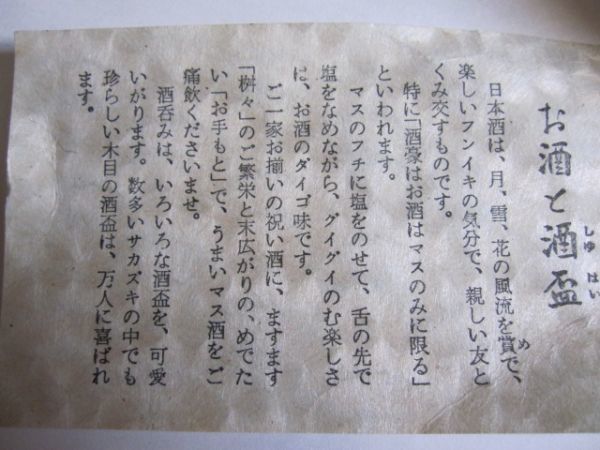 お酒と酒盃
しゅはい
日本酒は、月、雪、花の風流を賞で、
め
楽しいフンイキの気分で、親しい友と
くみ交すものです。
特に「酒豪はお酒はマスのみに限る」
といわれます。
マスのフチに塩をのせて、舌の先で
塩をなめながら、グイグイのむ楽しさ
は、お酒のダイゴ味です。
ご一家お揃いの祝い酒に、ますます
「桝々」のご繁栄と末広がりの、めでた
い「お手もと」で、うまいマス酒をご
痛飲くださいませ。
酒呑みは、いろいろな酒盃を、可愛
いがります。数多いサカズキの中でも
珍らしい木目の酒盃は、万人に喜ばれ
ます。